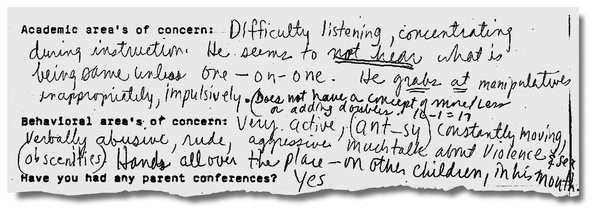 Academic area's of concern: Difficulty listening, concentrating
during instruction. He seems to not hear what is
being same unless one-on-one. He grabs at manipulatives
inappropriately, impulsively. (Does not have a concept of more/less
or adding doubles. 16-1=17
Behavioral area's of concern: Very active, (ant-sy) constantly moving,
verbally abusive, rude, aggressive much talk about violence & sex
(obscenities) Hands all over the place - on other children, in his mouth.
Have you had any parent conferences? Yes